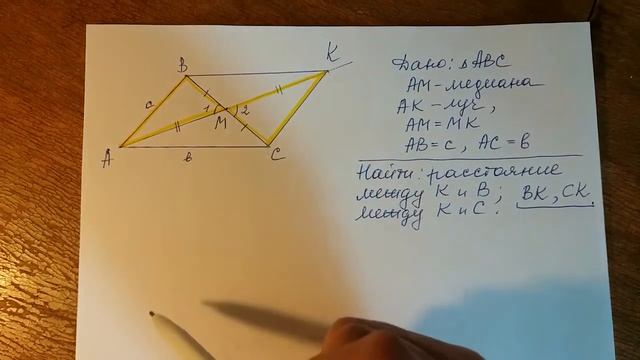 B
K
c
1
2
M
A
в
C
Дано: △ABC
AM - медиана
AK - луч,
AM = MK
AB = c, AC = в
Найти: расстояние
между K и B; BK, CK.
между K и C.